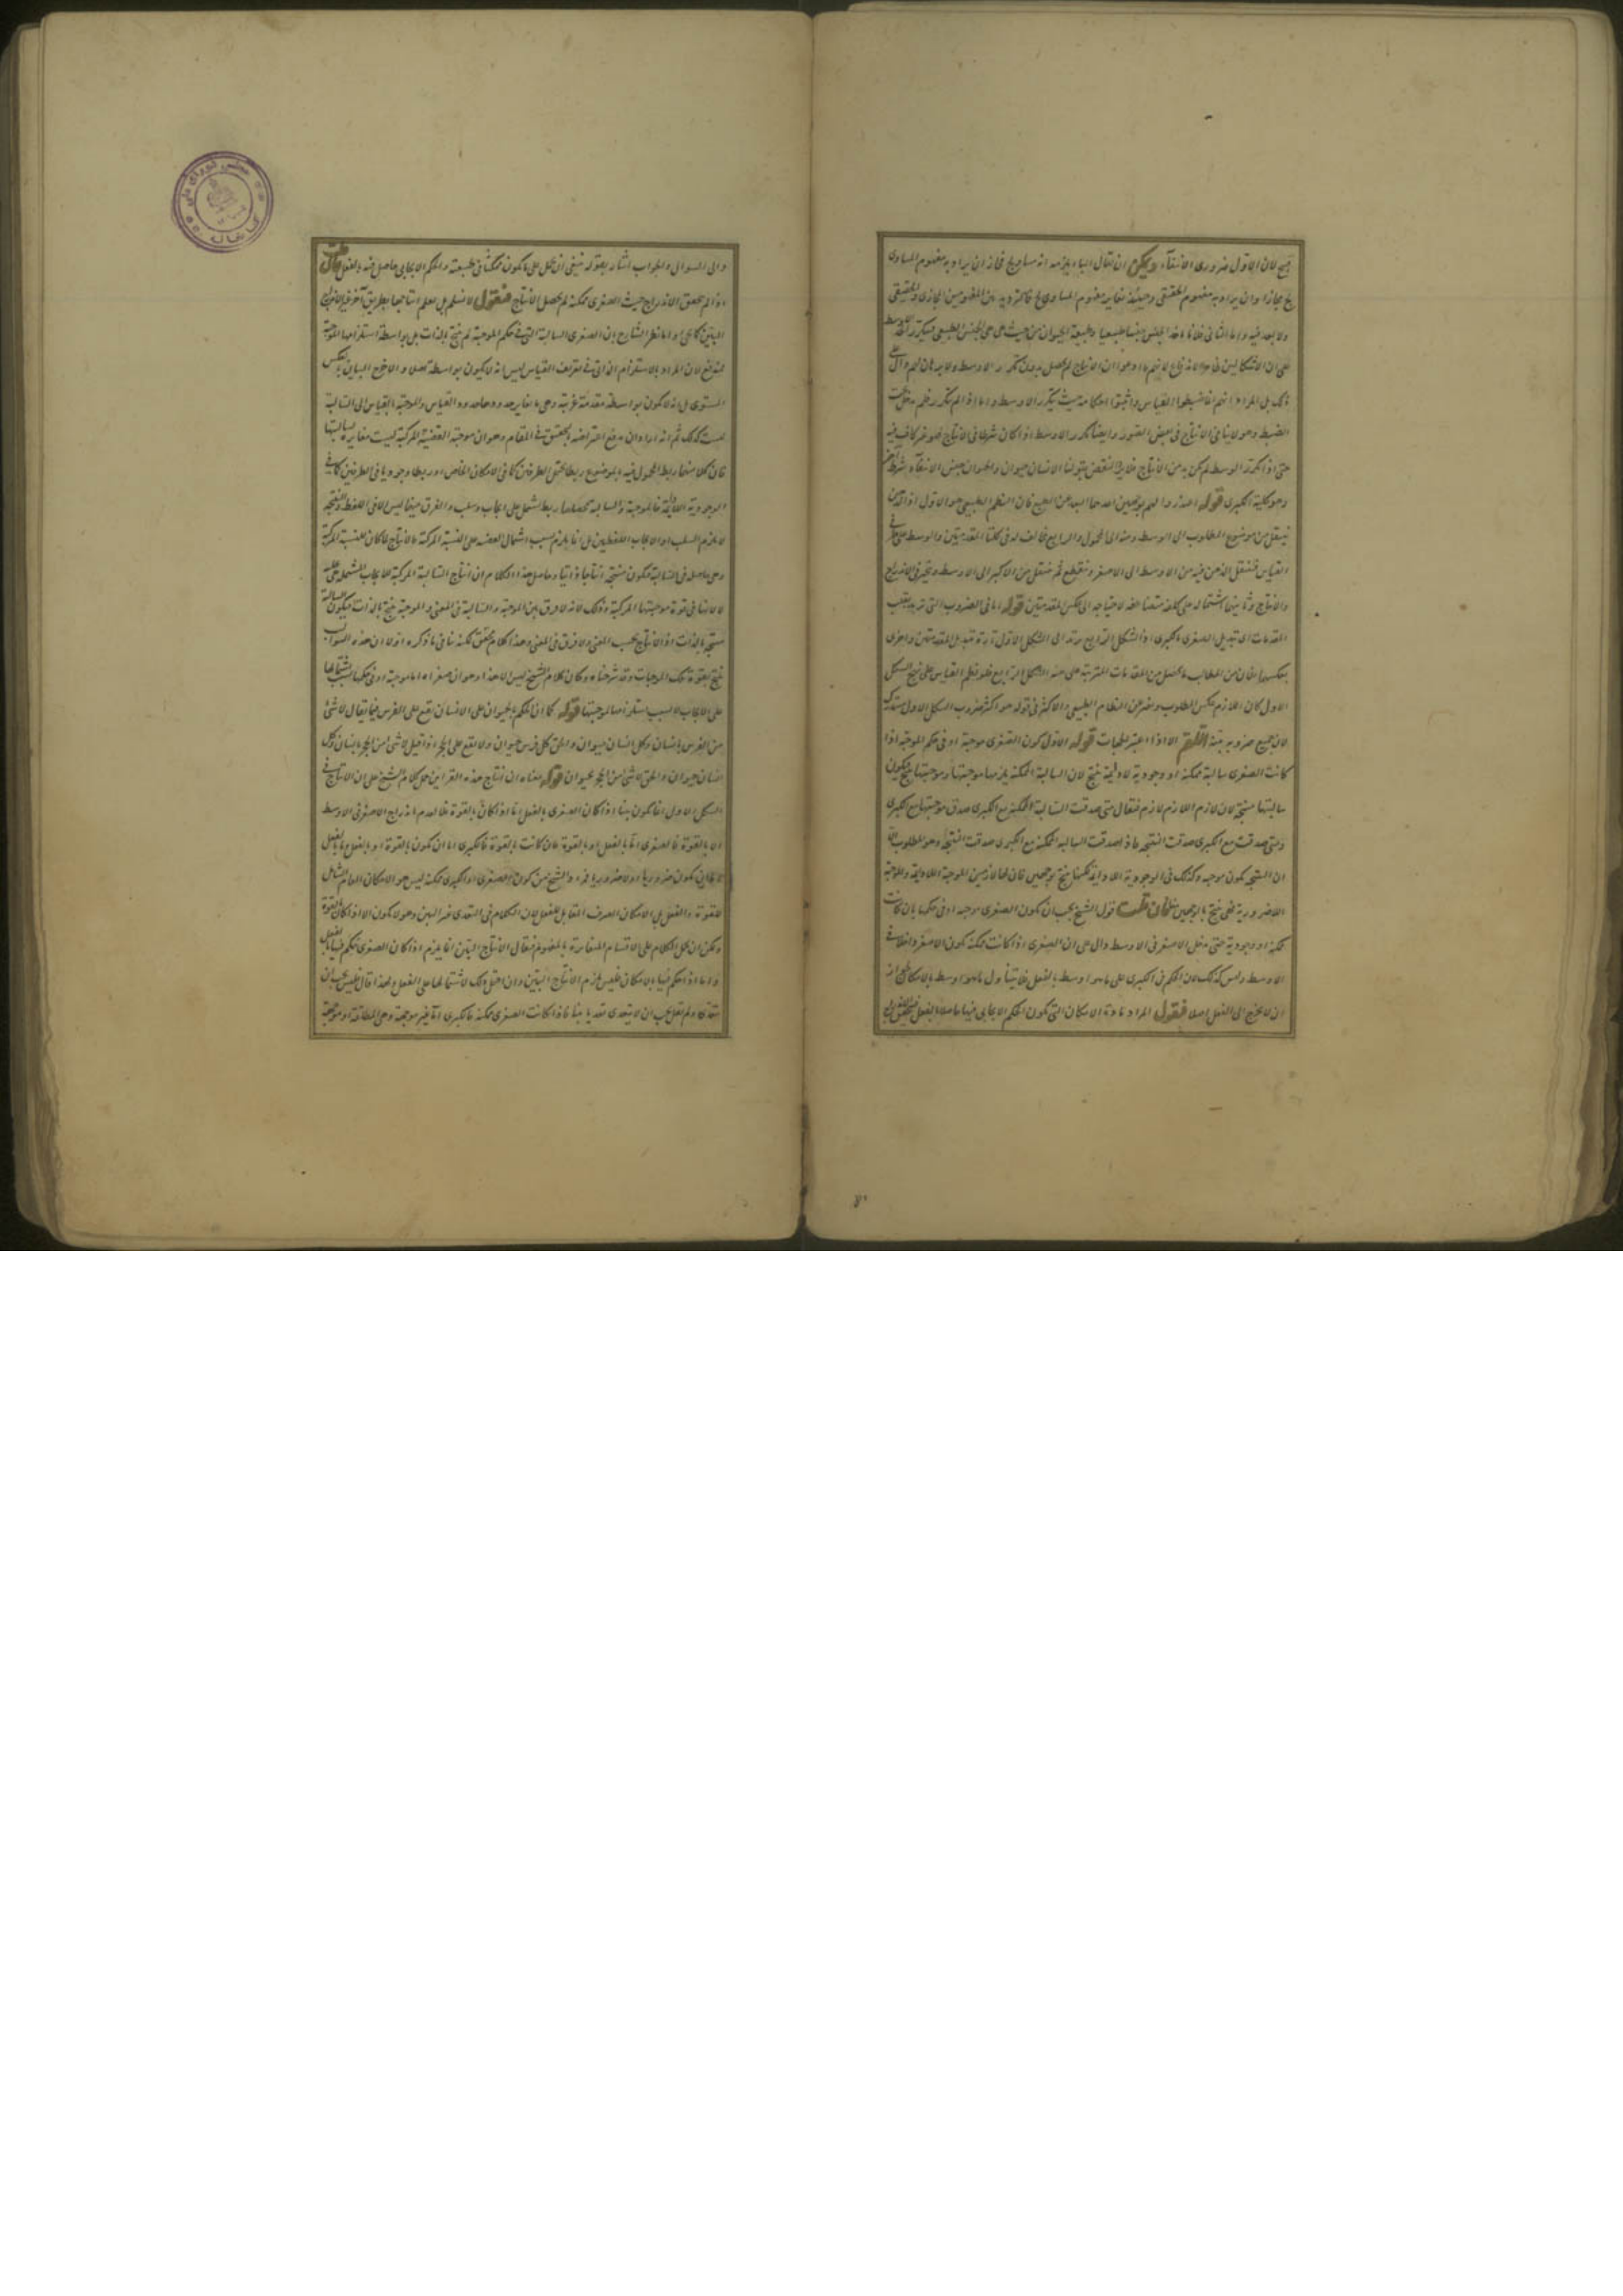 لان الاول ضرورى الانتفاء ويمكن ان يقال الباء يلزمه انه مساو لج فجاز ان يراد به مفهوم المساوى
لج مجازا وان يراد به مفهوم الحقيقى وحينئذ يغاير مفهوم المساوى لج فالترديد بين المفهومين المجازى والحقيقى
ولا بعد فيه واما الثانى فلانا ناخذ الجنس جنسا طبيعيا وطبيعة الحيوان من حيث هى هى الجنس الطبيعى فيتكرر الوسط
على ان الاشكالين فى لا نزاع لانهم ما ادعوا ان الانتاج لم يحصل بدون تكرر الاوسط ولا برهان لهم دال على
ذلك بل المراد انهم انما ضبطوا القياس واثبتوا احكامه بحيث يتكرر الاوسط واما اذا لم يتكرر فلم يدخل تحت
الضبط وهو لا ينافى الانتاج فى بعض الصور وايضا تكرر الاوسط اذا كان شرطا فى الانتاج فهو غير كاف فيه
حتى اذا تكرر الوسط لم يكن بد من الانتاج فلا يرد النقض بقولنا الانسان حيوان والحيوان جنس لانتفاء شرط آخر
وهو كلية الكبرى قوله اهدروا لهم بوجهين احدهما البعد عن الطبع فان النظم الطبيعى هو الاول اذ الذهن
ينتقل من موضوع المطلوب الى الوسط ومنه الى المحمول والرابع مخالف له فى كلتا المقدمتين والوسط على طرفى
القياس فينتقل الذهن فيه من الاوسط الى الاصغر وينقطع ثم ينتقل من الاكبر الى الاوسط ويتحير فى الاندراج
والانتاج وثانيهما اشتماله على كلفة متضاعفة لاحتياجه الى عكس المقدمتين قوله اما فى الضروب التى ترتد بقلب
المقدمات اى تبديل الصغرى بالكبرى اذ الشكل الرابع يرتد الى الشكل الاول تارة بتبديل المقدمتين واخرى
بعكسهما فان من المطالب ما يحصل من المقدمات المترتبة على هيئة الشكل الرابع فلو نظم القياس على نهج الشكل
الاول كان اللازم عكس المطلوب
لان جميع ضروبه بينة اللهم الا اذا اعتبر الجهات قوله الاول كون الصغرى موجبة او فى حكم الموجبة اذا
كانت الصغرى سالبة ممكنة او وجودية لا دائمة ينتج لان السالبة الممكنة يلزمها موجبتها وموجبتها ينتج فيكون
سالبتها منتجة لان لازم اللازم لازم فيقال متى صدقت السالبة الممكنة مع الكبرى صدق موجبتها مع الكبرى
ومتى صدقت مع الكبرى صدقت النتيجة فاذا صدقت السالبة الممكنة مع الكبرى صدقت النتيجة وهو المطلوب
ان النتيجة يكون موجبة وكذلك فى الوجودية اللادائمة لكنها ينتج بوجهين فان لها لازمين الموجبة اللادائمة والموجبة
اللاضرورية فهى ينتج بالوجهين فان قلت قول الشيخ يجب ان يكون الصغرى موجبة او فى حكمها بان كانت
ممكنة او وجودية حتى يدخل الاصغر فى الاوسط دال على ان الصغرى اذا كانت ممكنة يكون الاصغر داخلا فى
الاوسط وليس كذلك لان الحكم فى الكبرى على ما هو اوسط بالفعل فلا يتناول ما هو اوسط بالامكان
ان لا يخرج الى الفعل اصلا فنقول المراد مادة الامكان التى يكون الحكم الايجابى فيها حاصلا بالفعل
والى السوال والجواب اشار بقوله ينبغى ان يحمل على ما يكون ممكنا فى طبيعته والحكم الايجابى حاصل فيه بالفعل فان قلت
اذا لم يتحقق الاندراج حيث الصغرى ممكنة لم يحصل الانتاج فنقول لا نسلم بل يعلم انتاجها بطريق آخر غير الاندراج
البين كما مر واما نظر الشارح بان الصغرى السالبة التى فى حكم الموجبة لم ينتج بالذات بل بواسطة استلزامها الموجبة
فمندفع لان المراد بالاستلزام الذاتى فى تعريف القياس ليس انه لا يكون بواسطة اصلا والا خرج البيان بالعكس
المستوى بل انه لا يكون بواسطة مقدمة غريبة وهى ما يغاير حدودها حدود القياس والموجبة بالقياس الى السالبة
ليست كذلك ثم انه اراد ان يدفع اعتراضه بالتحقيق فى المقام وهو ان موجبة القضية المركبة ليست مغايرة لسالبتها
فان كلا منهما ربط المحمول فيه بالموضوع ربطا يحتمل الطرفين كما فى الامكان الخاص او ربطا وجوديا فى الطرفين كما فى
الوجودية اللادائمة فالموجبة والسالبة محصلهما ربط اشتمل على ايجاب وسلب والفرق بينهما ليس الا فى اللفظ والنتيجة
لا يلزم السلب او الايجاب اللفظيين بل انما يلزم بسبب اشتمال الصغرى على النسبة المركبة فالانتاج لما كان للنسبة المركبة
وهى حاصلة فى السالبة فيكون منتجة انتاجا ذاتيا وحاصل هذا الكلام ان انتاج السالبة المركبة للايجاب المشتمل عليه
لا لانها فى قوة موجبتها المركبة وذلك لانه لا فرق بين الموجبة والسالبة فى المعنى والموجبة ينتج بالذات فيكون السالبة
منتجة بالذات اذ الانتاج بحسب المعنى ولا فرق فى المعنى وهذا كلام محقق لكنه ينافى ما ذكره اولا ان هذه السوالب
ينتج بقوة تلك الموجبات وقد شرحناه وكان كلام الشيخ ليس الا هذا وهو ان صغراه اما موجبة او فى حكمها بسبب اشتمالها
على الايجاب لا بسبب استلزامها لموجبتها قوله كما ان الحكم بالحيوان على الانسان يقع على الفرس فيما يقال لا شئ
من الفرس بانسان وكل انسان حيوان والحق كل فرس حيوان ولا يقع على الحجر اذا قيل لا شئ من الحجر بانسان وكل
انسان حيوان والحق لا شئ من الحجر بحيوان قوله معناه ان انتاج هذه القراين حمل كلام الشيخ على ان الانتاج فى
الشكل الاول انما يكون بينا اذا كان الصغرى بالفعل اما اذا كان بالقوة فلا لعدم اندراج الاصغر فى الاوسط
الا بالقوة فالصغرى اما بالفعل او بالقوة فان كانت بالقوة فالكبرى اما ان يكون بالقوة او بالفعل
لا يكون ضروريا او لا ضروريا فمراد الشيخ من كون الصغرى او الكبرى ممكنة ليس هو الامكان العام الشامل
للقوة والفعل بل الامكان الصرف المقابل للفعل لان الكلام فى التعدى الغير البين وهو لا يكون الا اذا كان بالقوة
ويمكن ان يحمل الكلام على الاقسام المتغايرة بالمفهوم فيقال الانتاج البين انما يلزم اذا كان الصغرى الحكم فيها بالفعل
واما اذا حكم فيها بالامكان فليس يلزم الانتاج البين وان احتمل ذلك لاشتمالها على الفعل ولهذا قال فليس يجب ان
يتعدى ولم يقل يجب ان لا يتعدى تعديا بينا فاذا كانت الصغرى ممكنة فالكبرى اما غير موجهة وهى المطلقة او موجهة